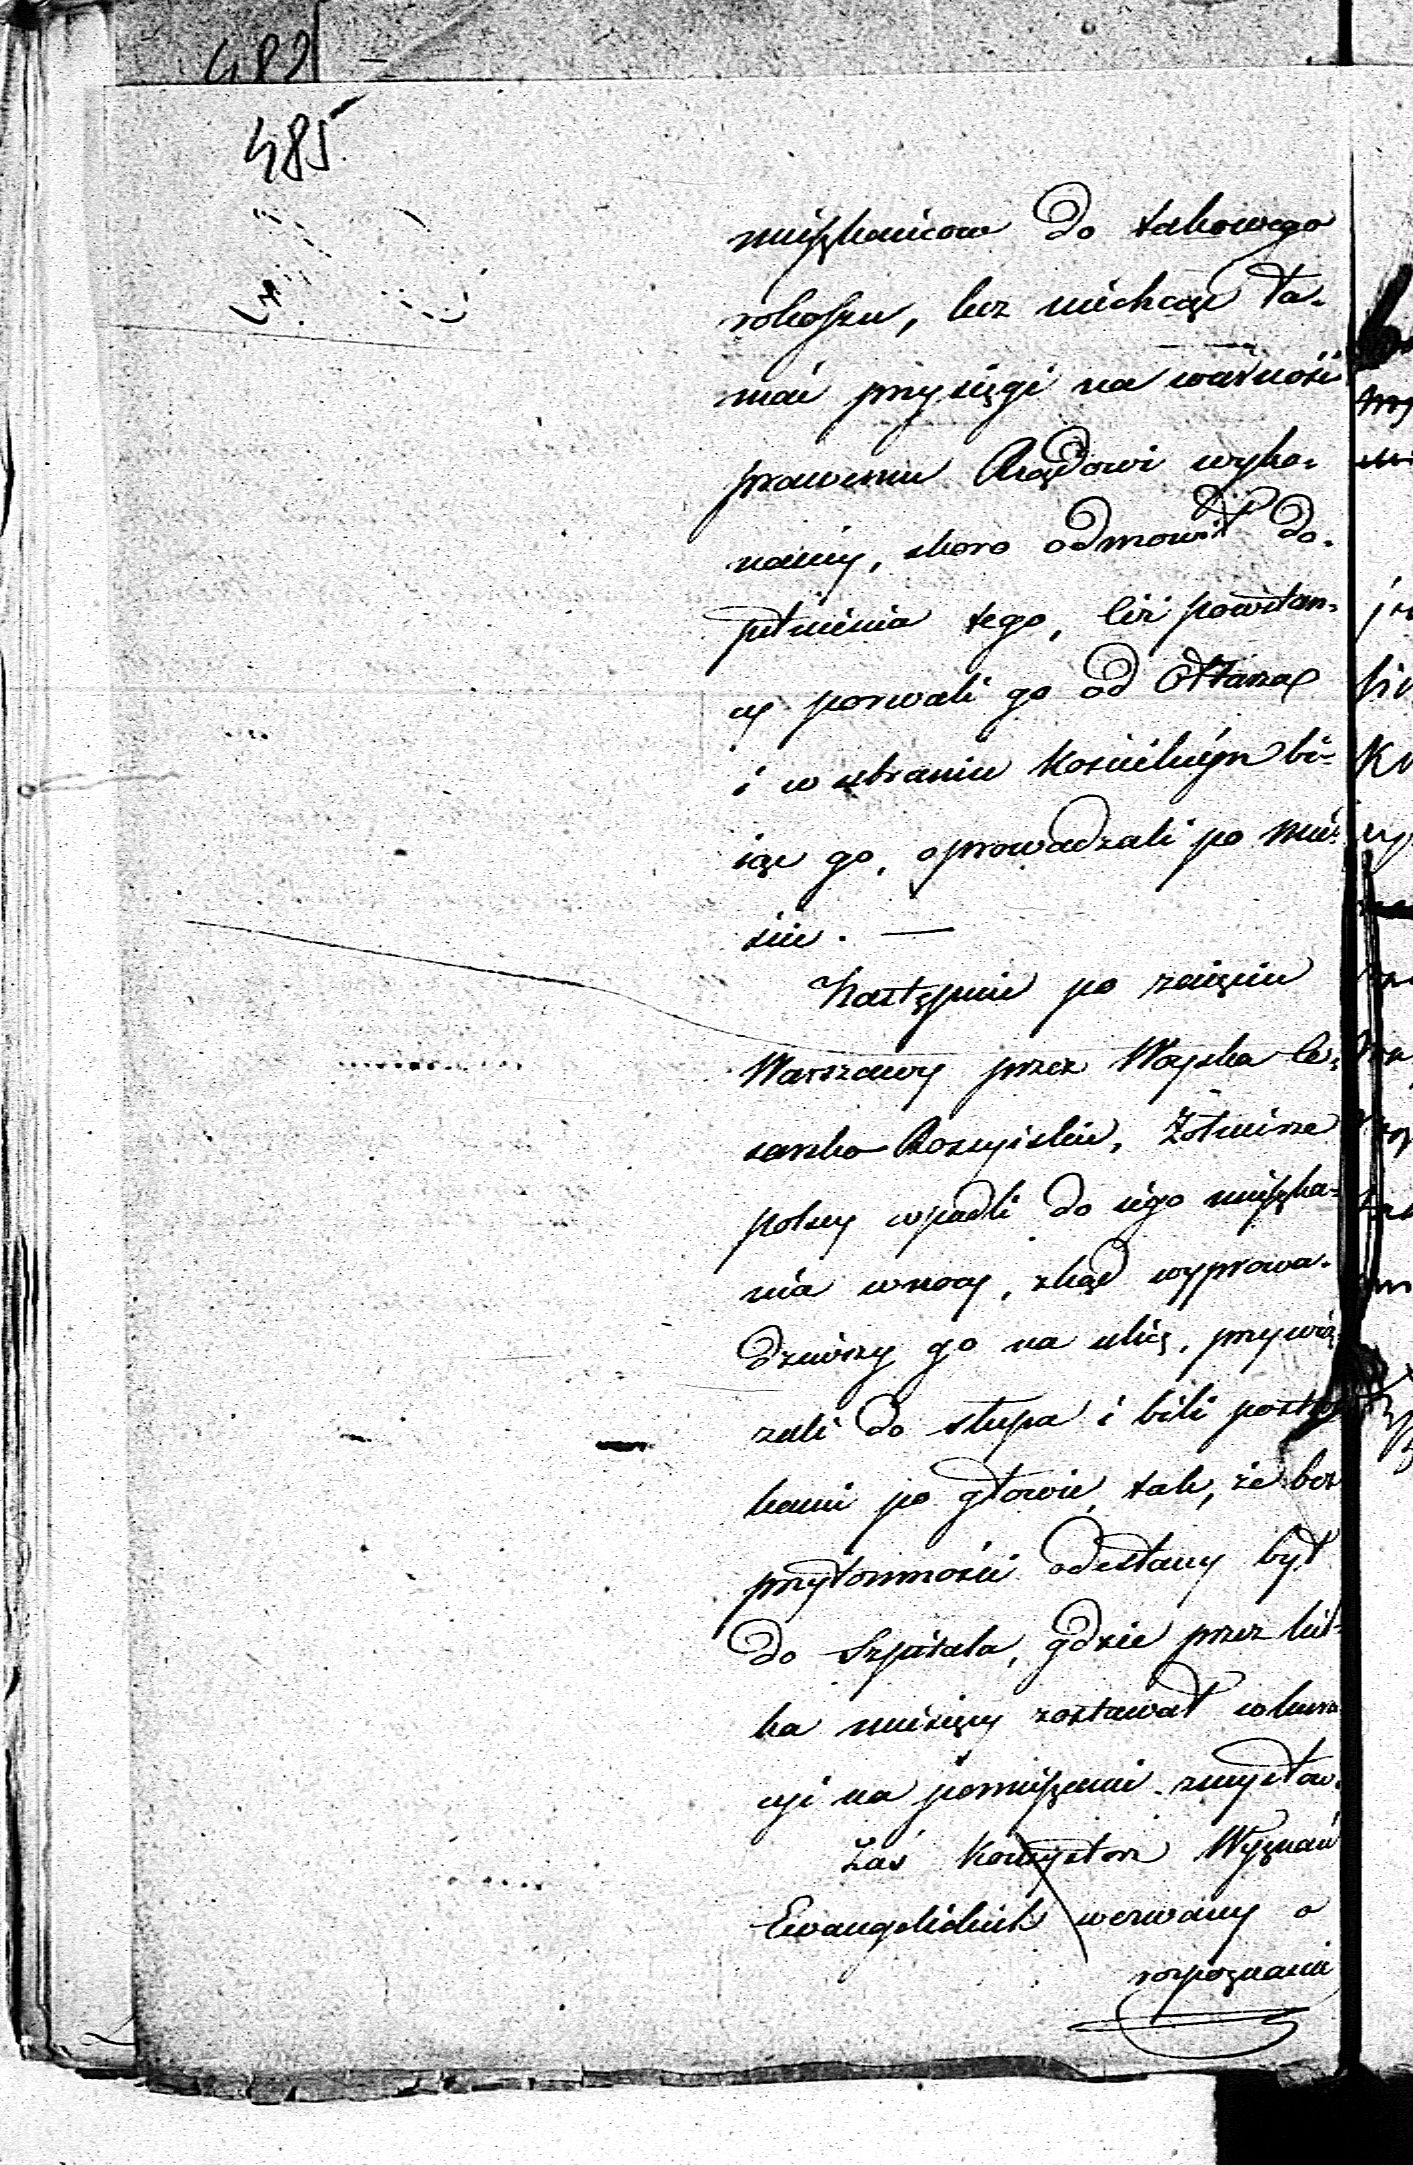 482
485
mięszkańcow do takowego
rokoszu, lecz niechcąc ła-
mać przysięgi na wierność
prawemu Rządowi wyko-
naney, skoro odmowił do-
pełnienia tego, ciż powstań-
cy porwali go od Ołtarza
i w ubraniu kościelnym bi-
iąc go, oprowadzali po mie-
ście. —
Następnie po zaięciu
Warszawy przez Woyska Ce-
sarsko Rossyiskie, Żołnierze
polscy wpadli do iego mięszka-
nia w nocy, zkąd wyprowa-
dziwszy go na ulicę, przywią-
zali do słupa i bili
kami po głowie, tak, że bez
przytomności odesłany był
do Szpitala, gdzie przez kil-
ka miesięcy zostawał w kura-
cyi na pomięszanie zmysłow.
Zaś Konsystorz Wyznań
Ewangelickich wezwany o
rozpoznanie